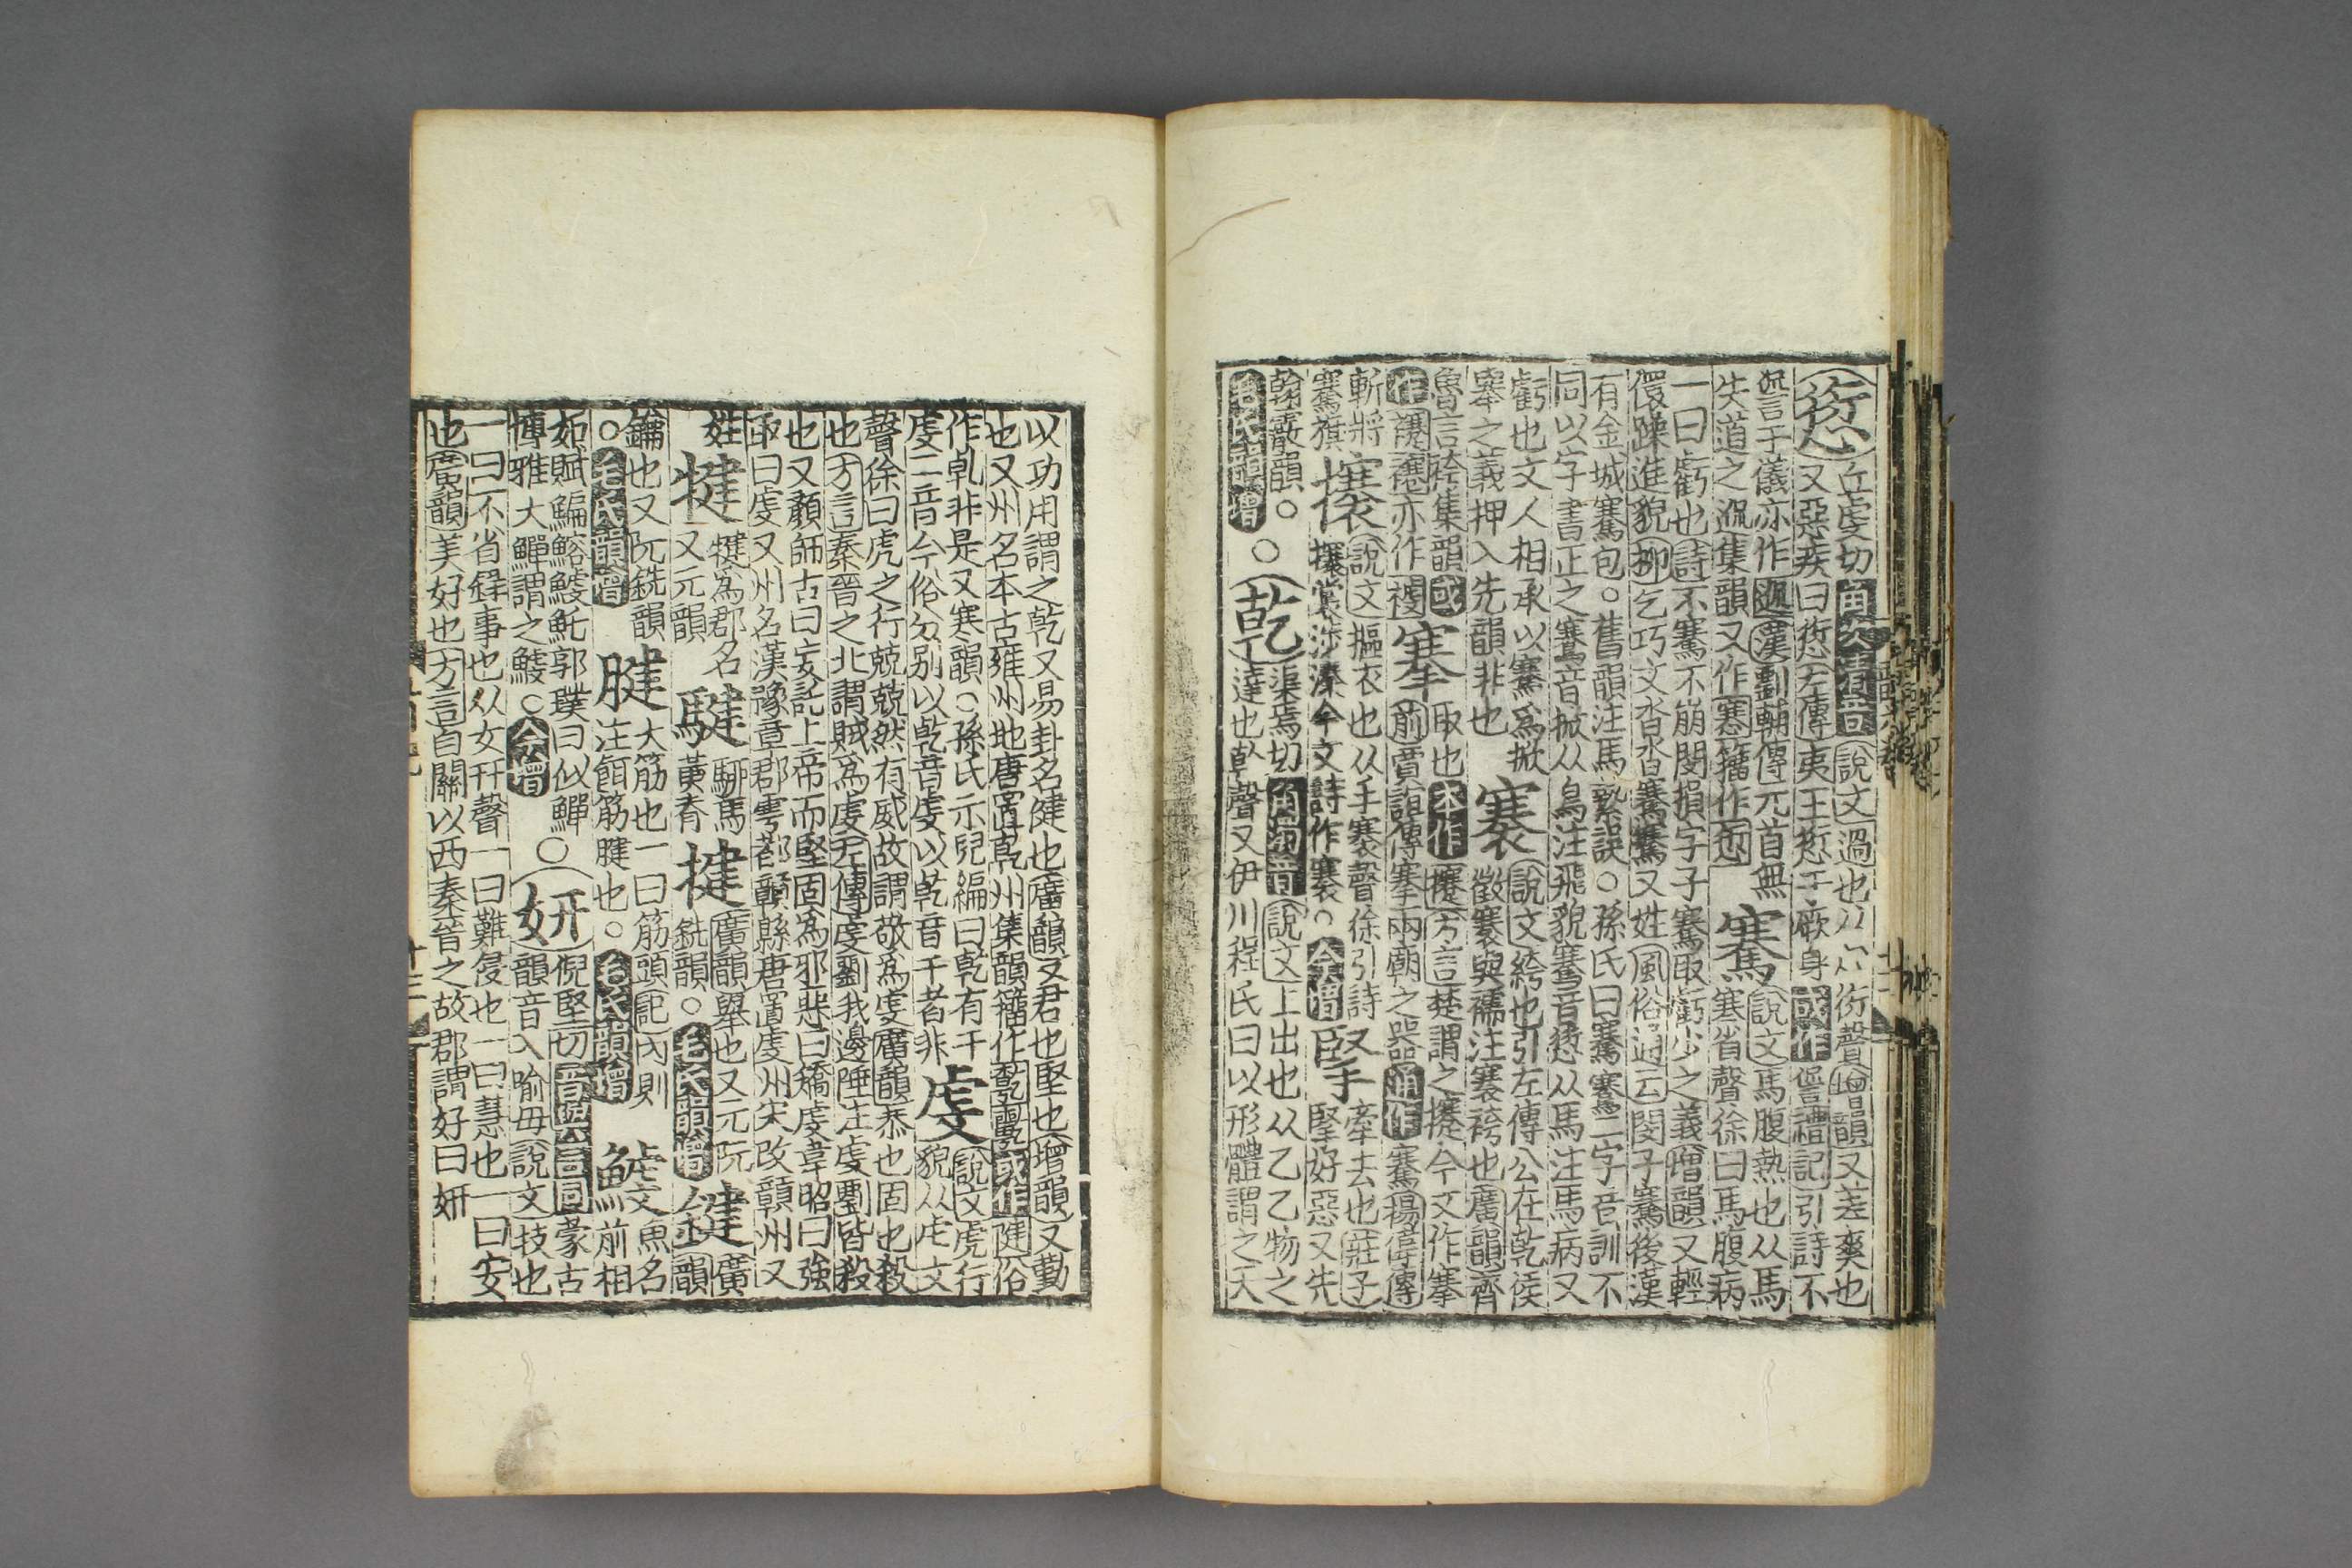 愆丘虔切角次清音說文過也从心衍聲增韻又差爽也
又惡疾曰愆左傳夷王愆于厥身或作諐禮記引詩不
諐言于儀亦作䢭漢劉輔傳元首無
失道之䢭集韻又作寋籀作
騫說文馬腹熱也从馬
寒省聲徐曰馬腹病
一曰虧也詩不騫不崩閔損字子騫取虧少之義增韻又輕
儇躁進貌柳乞巧文沓沓騫騫又姓風俗通云閔子騫後漢
有金城騫包○舊韻注馬縶誤○孫氏曰騫鶱二字音訓不
同以字書正之鶱音掀从鳥注飛貌騫音愆从馬注馬病又
虧也文人相承以騫爲掀
舉之義押入先韻非也
褰說文絝也引左傳公在乾侯
徵褰與襦注褰袴也廣韻齊
魯言袴集韻或
作亦作
搴取也本作攓方言楚謂之攓今文作搴
前賈誼傳搴兩廟之器通作騫揚雄傳
斬將
騫旗
攐說文摳衣也从手褰聲徐引詩
攐裳涉溱今文詩作褰○今增
掔牽去也莊子
堅好惡又先
翰霰韻○
毛氏韻增
○乾渠焉切角濁音說文上出也从乙乙物之
達也倝聲又伊川程氏曰以形體謂之天
以功用謂之乾又易卦名健也廣韻又君也堅也增韻又勤
也又州名本古雍州地唐置乾州集韻籀作或作漧俗
作乹非是又寒韻○孫氏示兒編曰乾有干
虔二音今俗分別以乹音虔以乾音干者非
虔說文虎行
貌从虍文
聲徐曰虎之行兢兢然有威故謂敬爲虔廣韻恭也固也殺
也方言秦晉之北謂賊爲虔左傳虔劉我邊陲注虔劉皆殺
也又顏師古曰妄託上帝而堅固爲邪惡曰矯虔韋昭曰強
取曰虔又州名漢豫章郡雩都贛縣唐置虔州宋改贛州又
姓
犍犍爲郡名
又元韻
騝騮馬
黃脊
揵廣韻舉也又元阮
銑韻○毛氏韻增
鍵廣
韻
鑰也又阮銑韻
○毛氏韻增
腱大筋也一曰筋頭記內則
注餌筋腱也○毛氏韻增
䱍魚名
前相
如賦鰅鰫鰬魠郭璞曰似鱓
博雅大鱓謂之鰬○今增
○妍倪堅切音與言同蒙古
韻音入喻母說文技也
一曰不省錄事也从女幵聲一曰難侵也一曰慧也一曰安
也廣韻美好也方言自關以西秦晉之故郡謂好曰妍